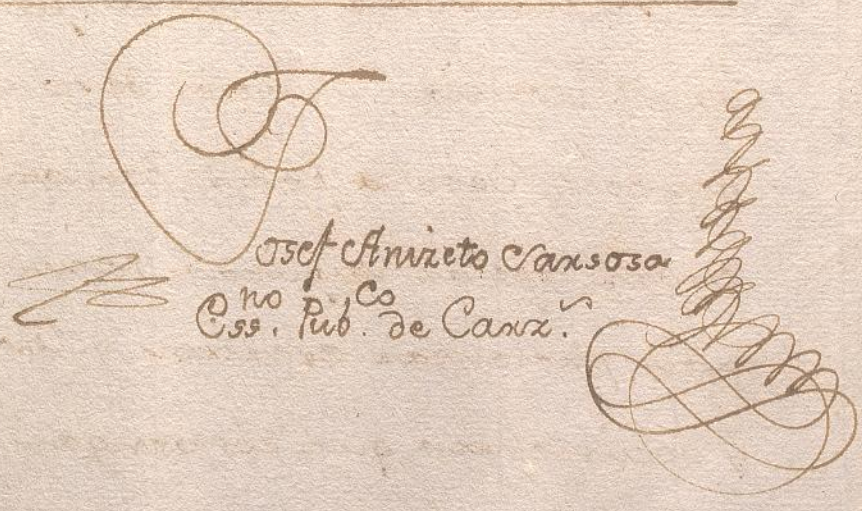 Josef Anizeto Sarsosa
Ess.no Pub.co de Carr.